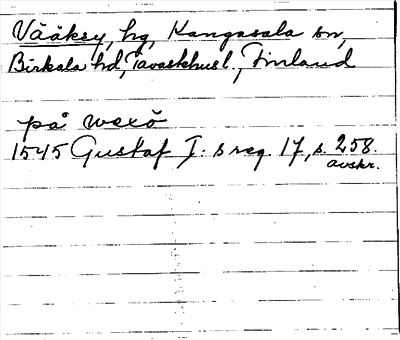 Vääksy, hg, Kangasala sn,
Birkala hd, Tavastehusl., Finland
på wexö
1545 Gustaf I:s reg. 17, s. 258.
avskr.